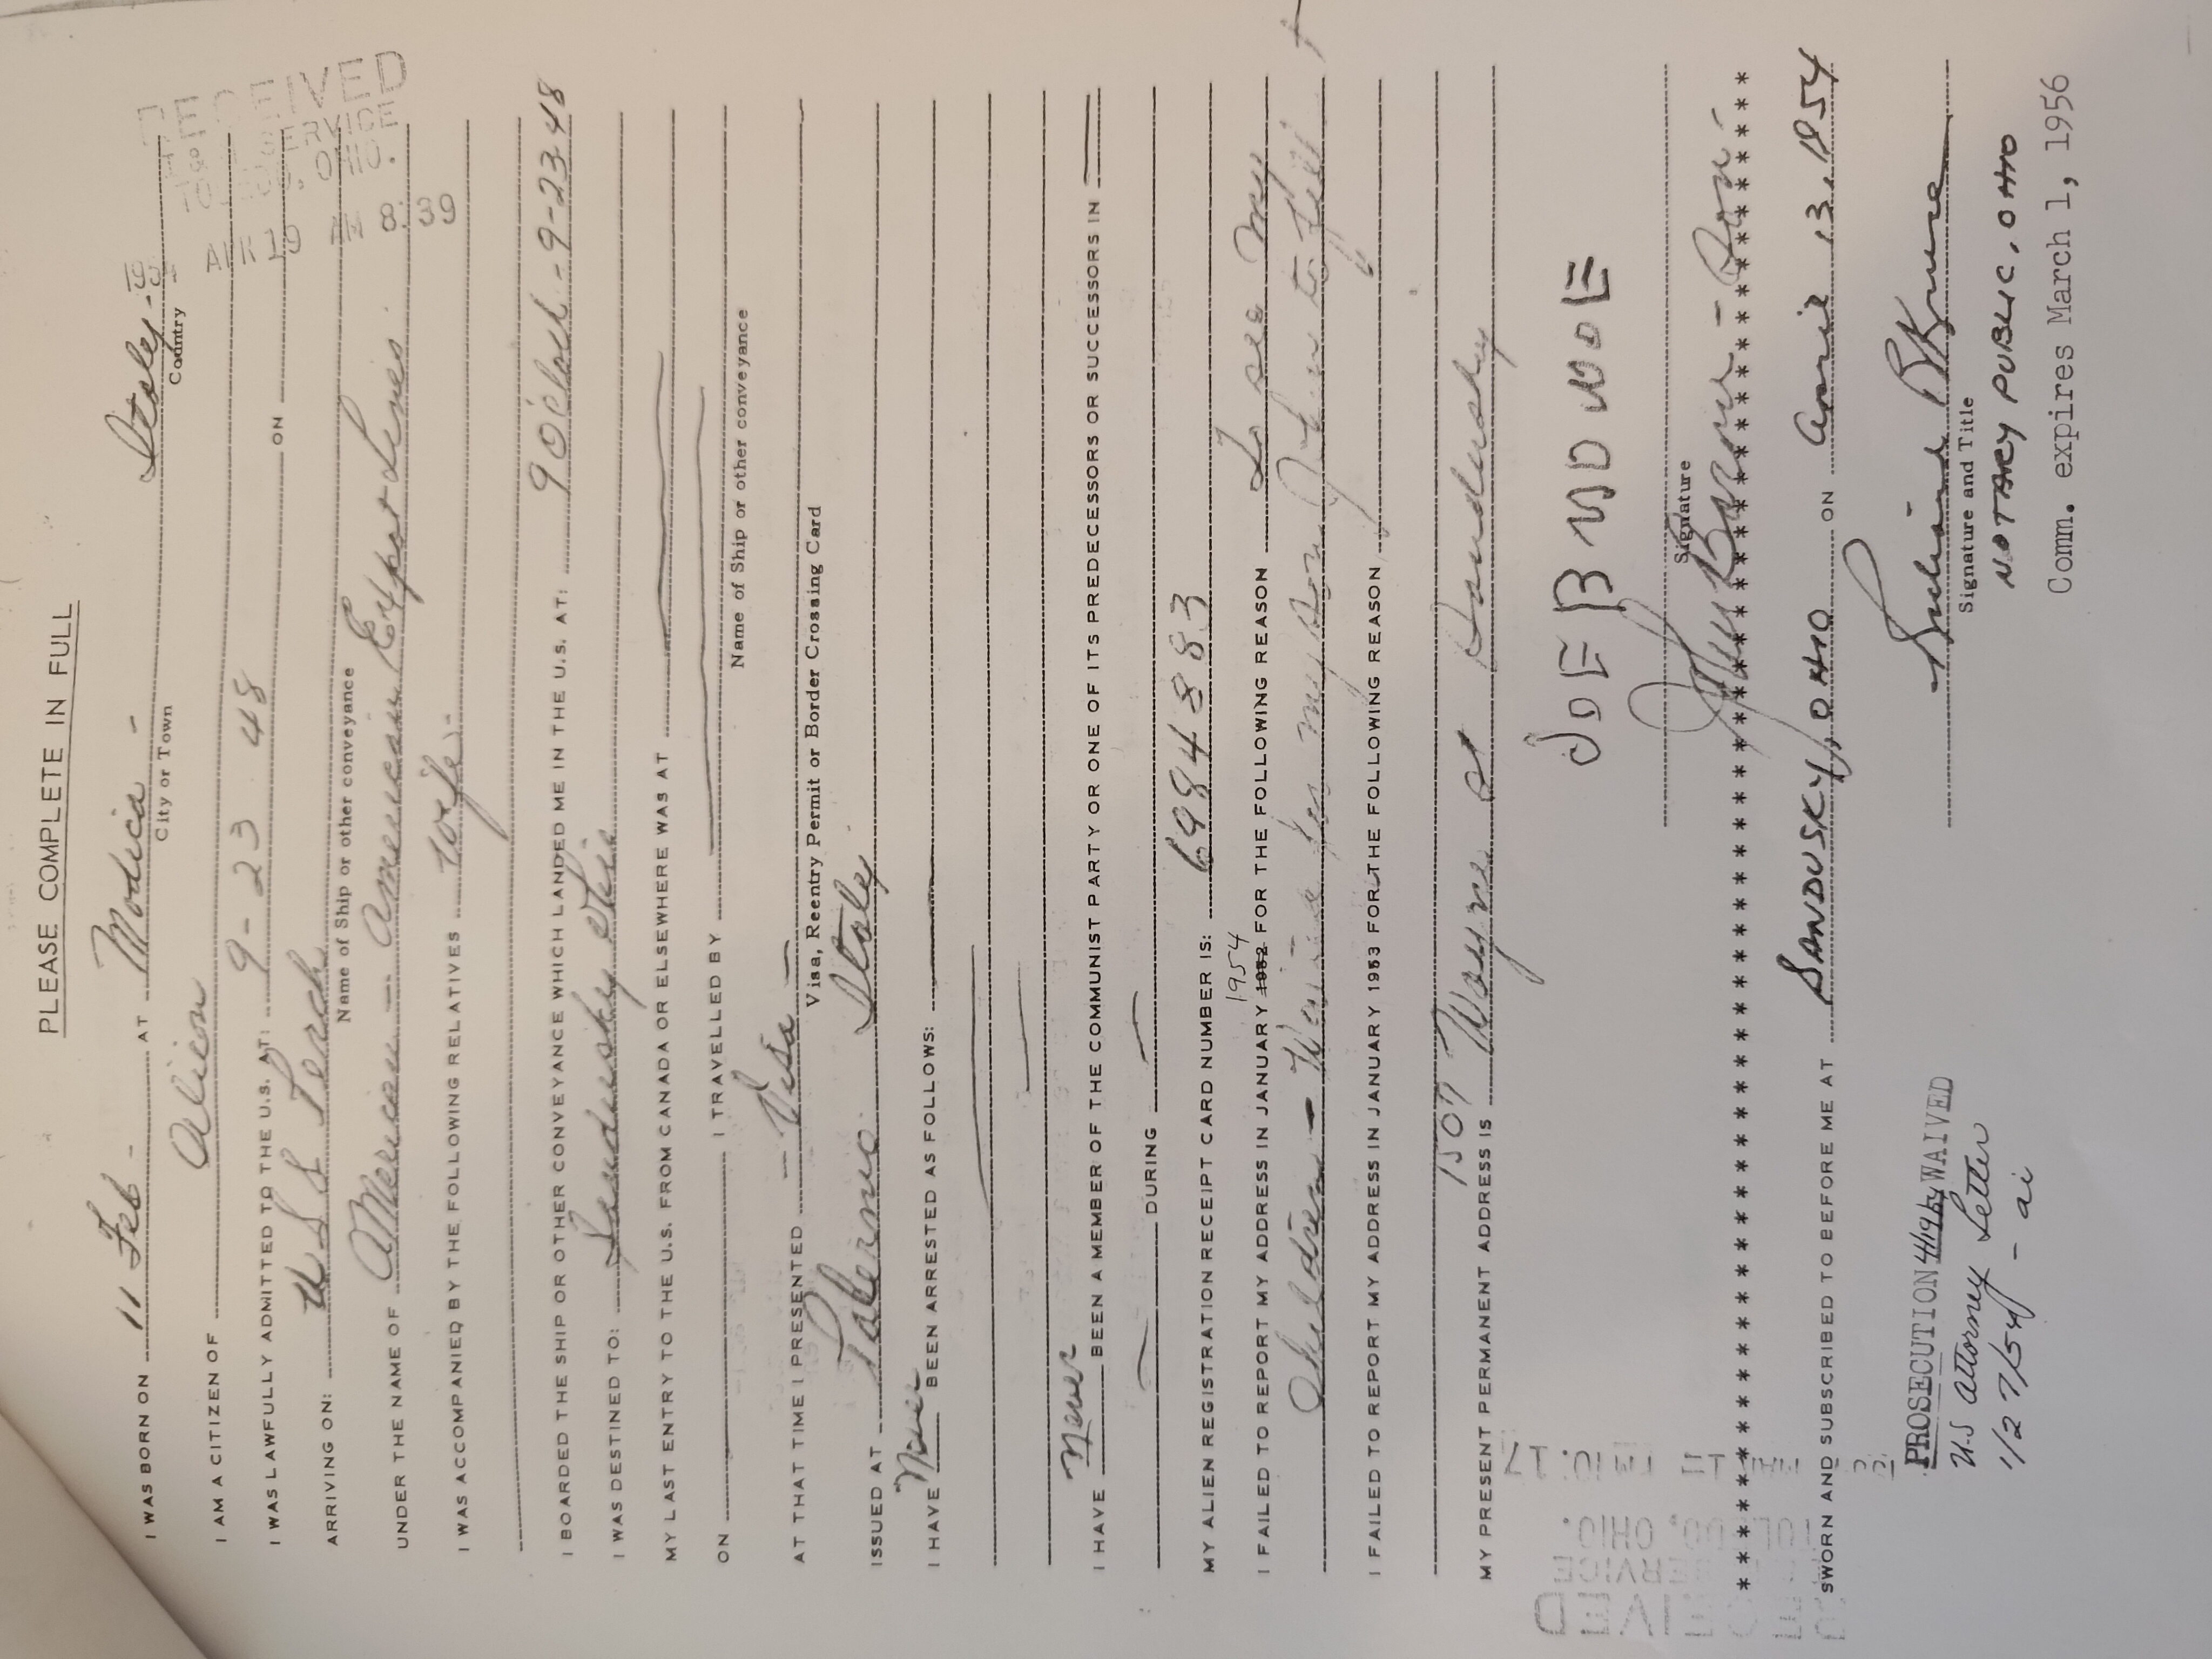 PLEASE COMPLETE IN FULL
I WAS BORN ON 11 Feb - AT Modica - Italy -
City or Town Country
I AM A CITIZEN OF Alien
I WAS LAWFULLY ADMITTED TO THE U.S. AT: 9-23 48 ON
ARRIVING ON: U S S Perch
Name of Ship or other conveyance
UNDER THE NAME OF American - American Expot Lines
I WAS ACCOMPANIED BY THE FOLLOWING RELATIVES wife -
I BOARDED THE SHIP OR OTHER CONVEYANCE WHICH LANDED ME IN THE U.S. AT: 9 O'Clock - 9-23-48
I WAS DESTINED TO: Sandusky Ohio
MY LAST ENTRY TO THE U.S. FROM CANADA OR ELSEWHERE WAS AT
ON I TRAVELLED BY
Name of Ship or other conveyance
AT THAT TIME I PRESENTED - Visa -
Visa, Reentry Permit or Border Crossing Card
ISSUED AT Palermo Italy
I HAVE Never BEEN ARRESTED AS FOLLOWS:
I HAVE never BEEN A MEMBER OF THE COMMUNIST PARTY OR ONE OF ITS PREDECESSORS OR SUCCESSORS IN
DURING
MY ALIEN REGISTRATION RECEIPT CARD NUMBER IS: 6984883
1954
I FAILED TO REPORT MY ADDRESS IN JANUARY 1952 FOR THE FOLLOWING REASON To see my
Children - Waited for my son John to fill
I FAILED TO REPORT MY ADDRESS IN JANUARY 1953 FOR THE FOLLOWING REASON
MY PRESENT PERMANENT ADDRESS IS 1507 Wayne st Sandusky
JOE
Signature
John - Son -
* * * * * * * * * * * * * * * * * * * * * * * * * * * * * * * * * * * * * * * * * * * * * * * * * * * * * * * * * * *
SWORN AND SUBSCRIBED TO BEFORE ME AT SANDUSKY, OHIO ON April 13, 1954
Richard B Kruse
Signature and Title
NOTARY PUBLIC, OHIO
Comm. expires March 1, 1956
PROSECUTION 4/19/54 WAIVED
U.S Attorney Letter
1/27/54 - ai
RECEIVED
SERVICE
TOLEDO, OHIO.
1954 APR 19 AM 8:39
RECEIVED
SERVICE
TOLEDO, OHIO.